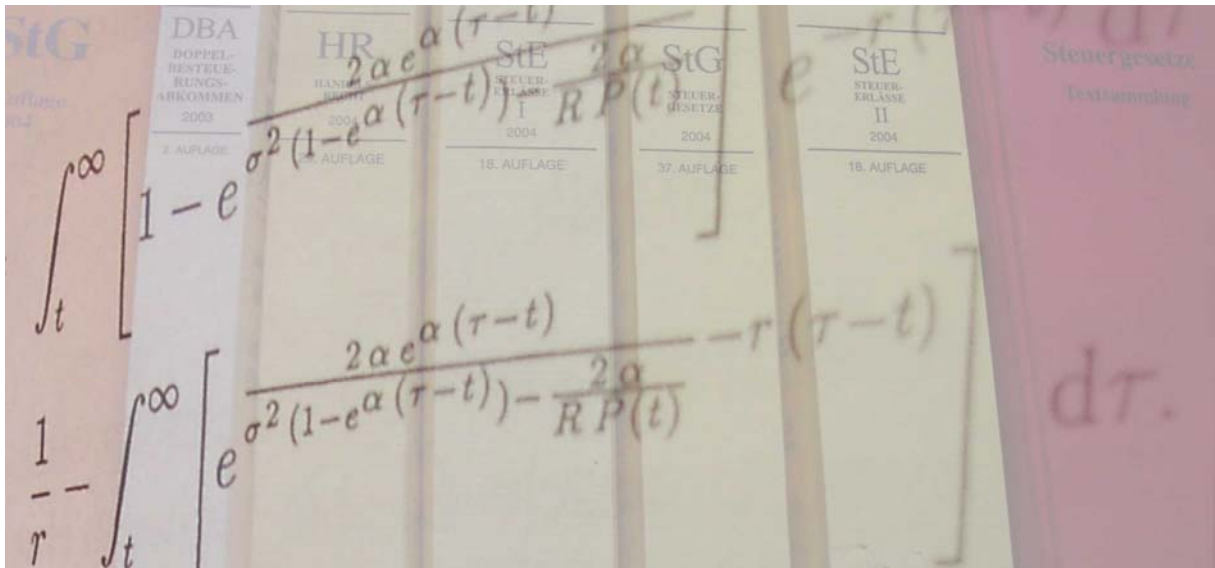 StG
DBA
DOPPEL-
BESTEUE-
RUNGS-
ABKOMMEN
2003
2. AUFLAGE
HR
2004
AUFLAGE
StE
STEUER-
ERLÄSSE
I
2004
18. AUFLAGE
StG
STEUER-
GESETZE
2004
37. AUFLAGE
StE
STEUER-
ERLÄSSE
II
2004
18. AUFLAGE
Steuergesetze
Textsammlung
∫_t^∞ [1 − e^{\frac{2 α e^{α (τ−t)}}{σ^2 (1−e^{α (τ−t)}) − \frac{2 α}{R P(t)}}}] e^{−r (τ−t)} dτ
\frac{1}{r} − ∫_t^∞ [e^{\frac{2 α e^{α (τ−t)}}{σ^2 (1−e^{α (τ−t)}) − \frac{2 α}{R P(t)}} − r (τ−t)}] dτ.